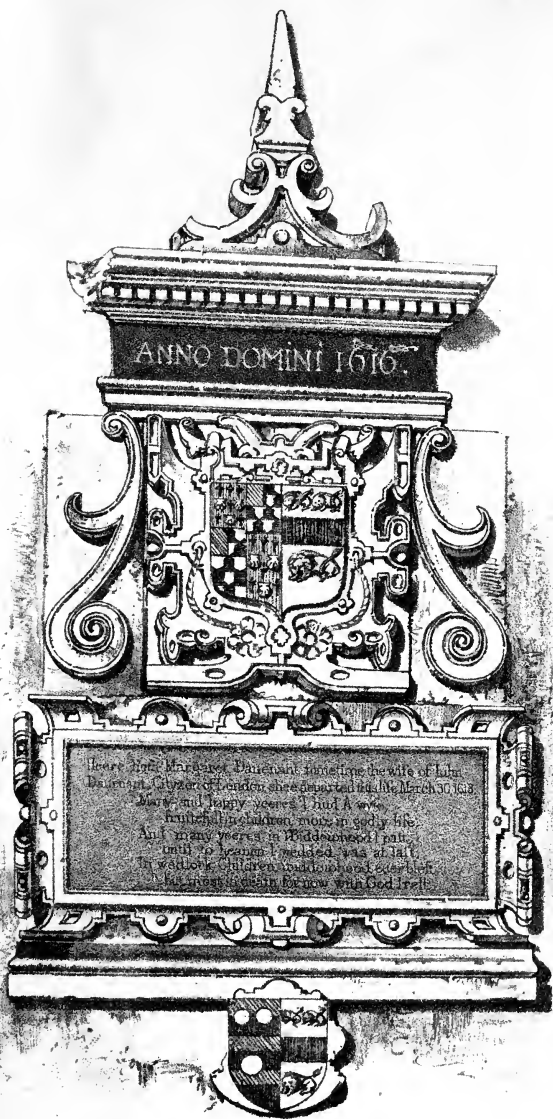 ANNO DOMINI 1616.
Heere lyeth Margaret Dauenant sometime the wife of Iohn
Dauenant Cityzen of London shee departed this life March 30 1613
Many and happy yeeres I liud A wife
fruitefull in children more in godly life
And many yeeres in Widdowhood I past
until to heauen I wedded was at last
In wedlock Children widdowhood euer blest
in death for now with God I rest